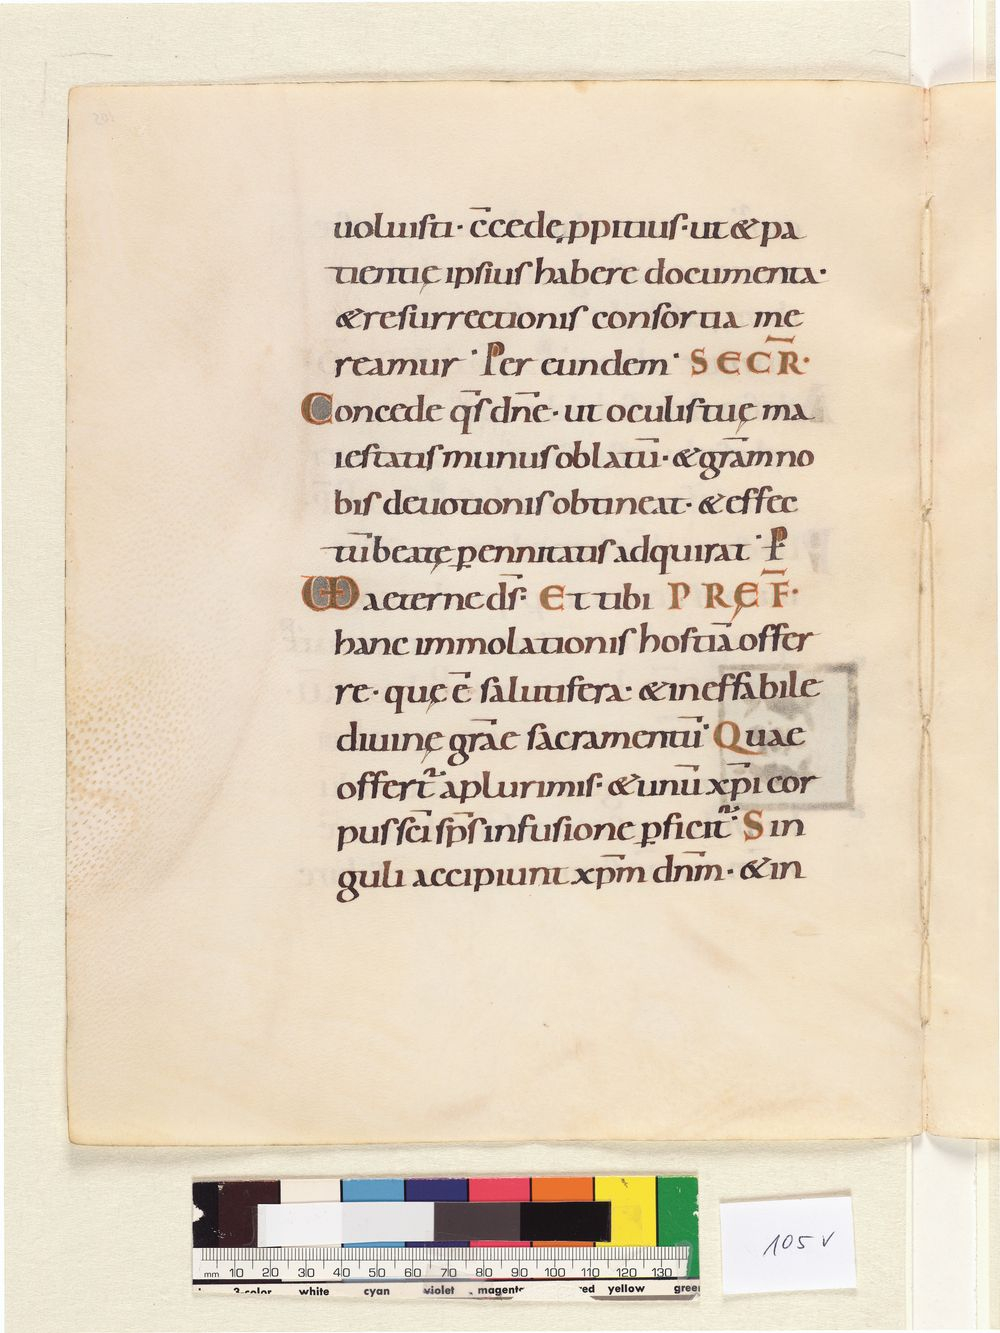 uoluisti· c̄cede ꝓpitius· ut & pa
tientię ipsius habere documenta·
& resurrectionis consortia me
reamur· Per eundem· SECR̄·
Concede q̄s dn̄e· ut oculis tuę ma
iestatis munus oblatū· & grām no
bis deuotionis obtineat· & effec
tū beatę ꝑennitatis adquirat· P
VD aeterne ds̄· Et tibi PRĘF̄·
hanc immolationis hostiā offer
re· quę ē salutifera· & ineffabile
diuinę grāe sacramentū· Quae
offert᷑ a plurimis· & unū xp̄i cor
pus sc̄i sp̄s infusione ꝑficit᷑· Sin
guli accipiunt xp̄m dn̄m· & in
105 v
mm 10 20 30 40 50 60 70 80 90 100 110 120 130
3-color white cyan violet magenta red yellow green